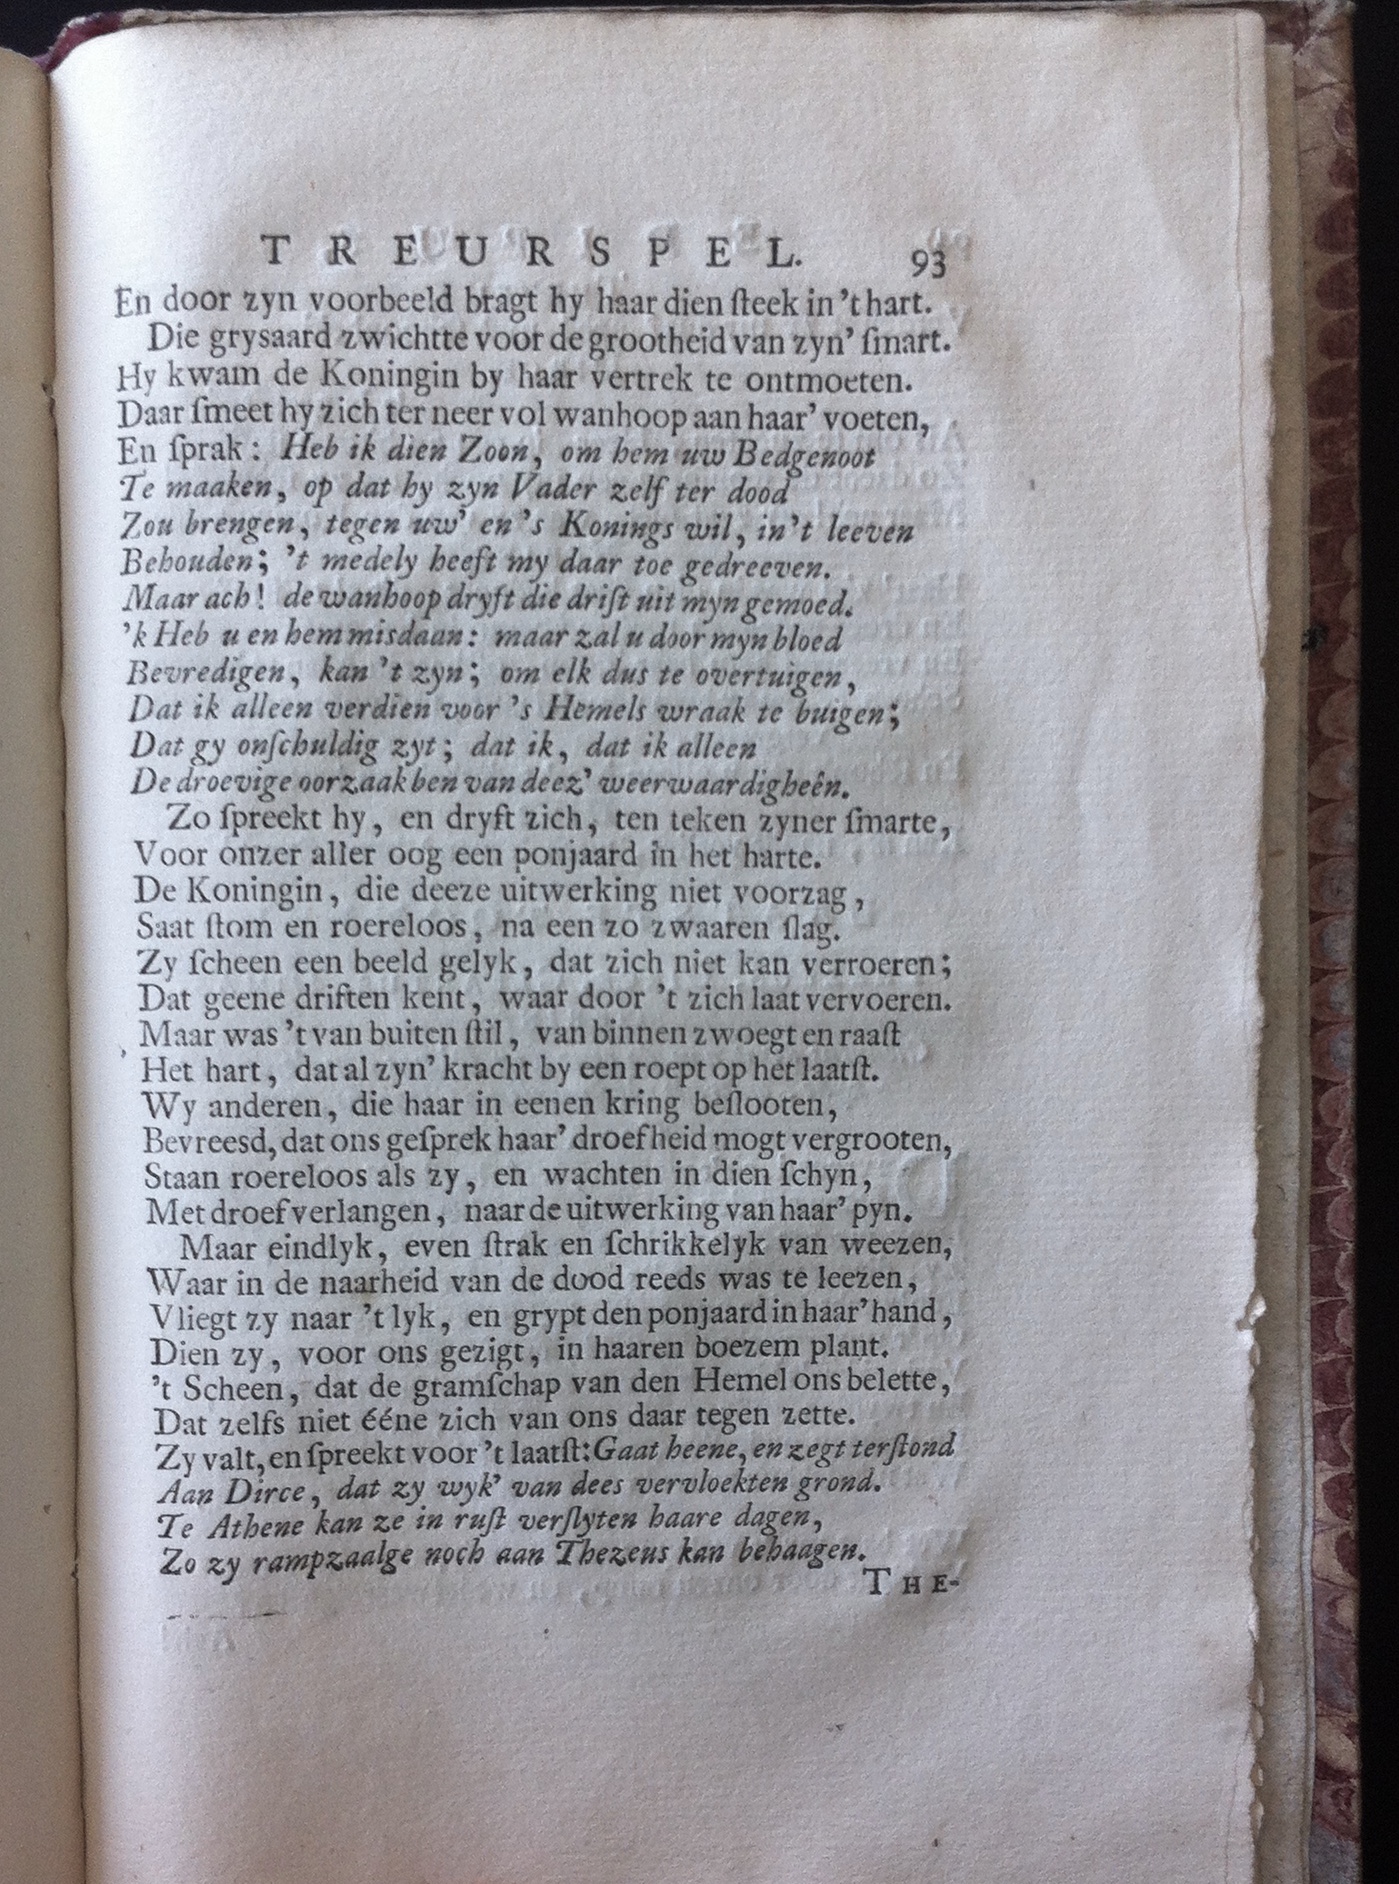 TREURSPEL. 93
En door zyn voorbeeld bragt hy haar dien ſteek in 't hart.
Die grysaard zwichtte voor de grootheid van zyn' ſmart.
Hy kwam de Koningin by haar vertrek te ontmoeten.
Daar ſmeet hy zich ter neer vol wanhoop aan haar' voeten,
En ſprak: Heb ik dien Zoon, om hem uw Bedgenoot
Te maaken, op dat hy zyn Vader zelf ter dood
Zou brengen, tegen uw' en 's Konings wil, in 't leeven
Behouden; 't medely heeft my daar toe gedreeven.
Maar ach! de wanhoop dryft die drift uit myn gemoed.
'k Heb u en hem misdaan: maar zal u door myn bloed
Bevredigen, kan 't zyn; om elk dus te overtuigen,
Dat ik alleen verdien voor 's Hemels wraak te buigen;
Dat gy onſchuldig zyt; dat ik, dat ik alleen
De droevige oorzaak ben van deez' weerwaardigheên.
Zo ſpreekt hy, en dryft zich, ten teken zyner ſmarte,
Voor onzer aller oog een ponjaard in het harte.
De Koningin, die deeze uitwerking niet voorzag,
Saat ſtom en roereloos, na een zo zwaaren ſlag.
Zy ſcheen een beeld gelyk, dat zich niet kan verroeren;
Dat geene driften kent, waar door 't zich laat vervoeren.
Maar was 't van buiten ſtil, van binnen zwoegt en raaſt
Het hart, dat al zyn' kracht by een roept op het laatſt.
Wy anderen, die haar in eenen kring beſlooten,
Bevreesd, dat ons geſprek haar' droefheid mogt vergrooten,
Staan roereloos als zy, en wachten in dien ſchyn,
Met droef verlangen, naar de uitwerking van haar' pyn.
Maar eindlyk, even ſtrak en ſchrikkelyk van weezen,
Waar in de naarheid van de dood reeds was te leezen,
Vliegt zy naar 't lyk, en grypt den ponjaard in haar' hand,
Dien zy, voor ons gezigt, in haaren boezem plant.
't Scheen, dat de gramſchap van den Hemel ons belette,
Dat zelfs niet ééne zich van ons daar tegen zette.
Zy valt, en ſpreekt voor 't laatſt: Gaat heene, en zegt terſtond
Aan Dirce, dat zy wyk' van dees vervloekten grond.
Te Athene kan ze in ruſt verſlyten haare dagen,
Zo zy rampzaalge noch aan Thezeus kan behaagen.
THE-